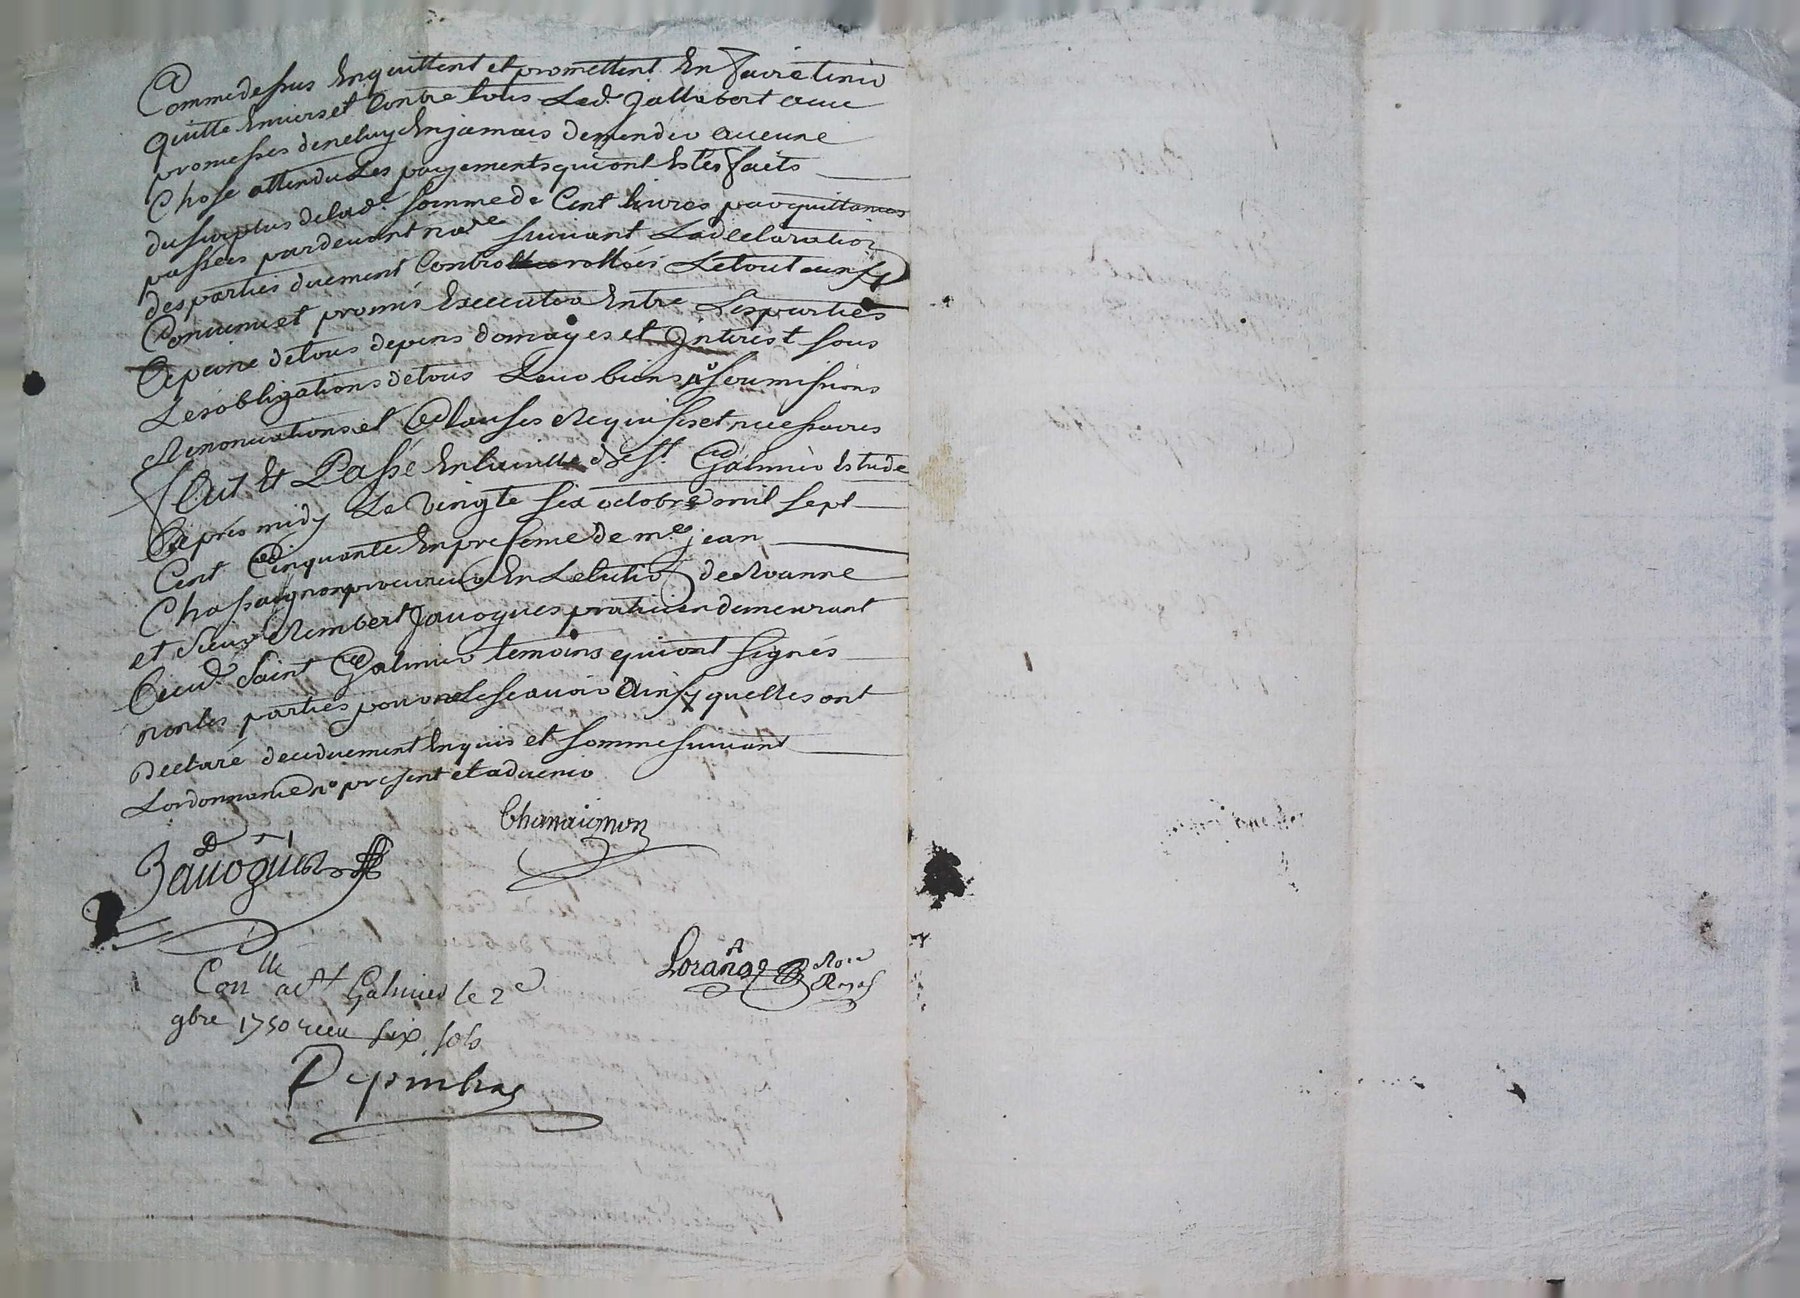 Comme dessus En quittent et promettent En faire tenir
quitte Envers et Contre tous Led. Jallabert avec
promesses de ne luy En jamais demender aucune
Chose attendu Les payements qui ont Estes faits
du surplus de lad.e somme de Cent livres par quittances
passées pardevant no.re suivant La declaration
des parties duement Controllées Le tout ainsy
Convenu et promis Executer Entre Les parties
A peine de tous depens domages et Interest sous
Les obligations de tous Leur biens soumissions
Renonciations et Clauses Requises et necessaires
fait Et Passé En la ville de St. Galmier Estude
Apres midy Le vingte six octobre mil sept
Cent Cinquante En presence de me. jean
Chassaignon procureur En L'election de Roanne
et sieur Rembert Javogues praticien demeurant
aud. Saint Galmier temoins qui ont signés
non les parties pour ne le scavoir Ainsy quelles ont
Declaré de ce duement Enquis et sommé suivant
Lordonnance present et advenir
Javogues
Chassaignon
Lorange No.re Royal
Con.lle a St Galmier le 2e
9bre 1750 receu six sols